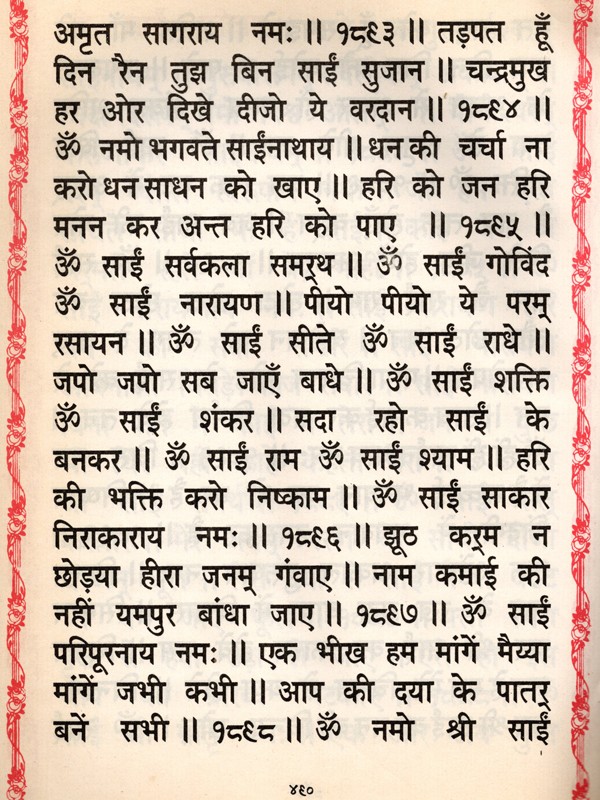 अमृत सागराय नमः॥ १८९३॥ तड़पत हूँ
दिन रैन तुझ बिन साईं सुजान॥ चन्द्रमुख
हर ओर दिखे दीजो ये वरदान॥ १८९४॥
ॐ नमो भगवते साईंनाथाय॥ धन की चर्चा ना
करो धन साधन को खाए॥ हरि को जन हरि
मनन कर अन्त हरि को पाए॥ १८९५॥
ॐ साईं सर्वकला समर्‌थ॥ ॐ साईं गोविंद
ॐ साईं नारायण॥ पीयो पीयो ये परम्
रसायन॥ ॐ साईं सीते ॐ साईं राधे॥
जपो जपो सब जाएँ बाधे॥ ॐ साईं शक्ति
ॐ साईं शंकर॥ सदा रहो साईं के
बनकर॥ ॐ साईं राम ॐ साईं श्याम॥ हरि
की भक्ति करो निष्काम॥ ॐ साईं साकार
निराकाराय नमः॥ १८९६॥ झूठ कर्‌म न
छोड़या हीरा जनम् गंवाए॥ नाम कमाई की
नहीं यमपुर बांधा जाए॥ १८९७॥ ॐ साईं
परिपूरनाय नमः॥ एक भीख हम मांगें मैय्या
मांगें जभी कभी॥ आप की दया के पातर्
बनें सभी॥ १८९८॥ ॐ नमो श्री साईं
४९०